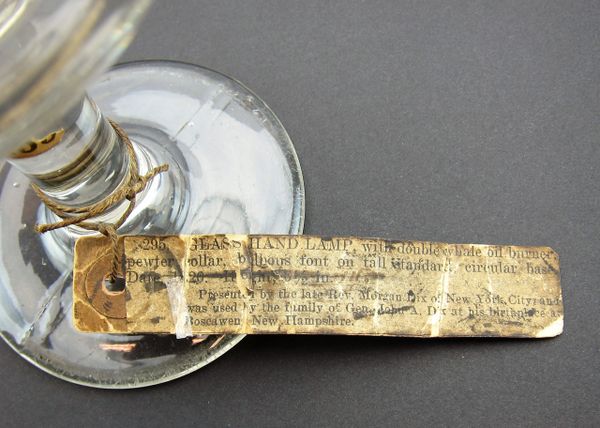 295. GLASS HAND LAMP, with double whale oil burner
pewter collar, bulbous font on tall standard, circular base
Date 1820.
Presented by the late Rev. Morgan Dix of New York City; and
was used by the family of Gen. John A. Dix at his birthplace at
Boscawen, New Hampshire.